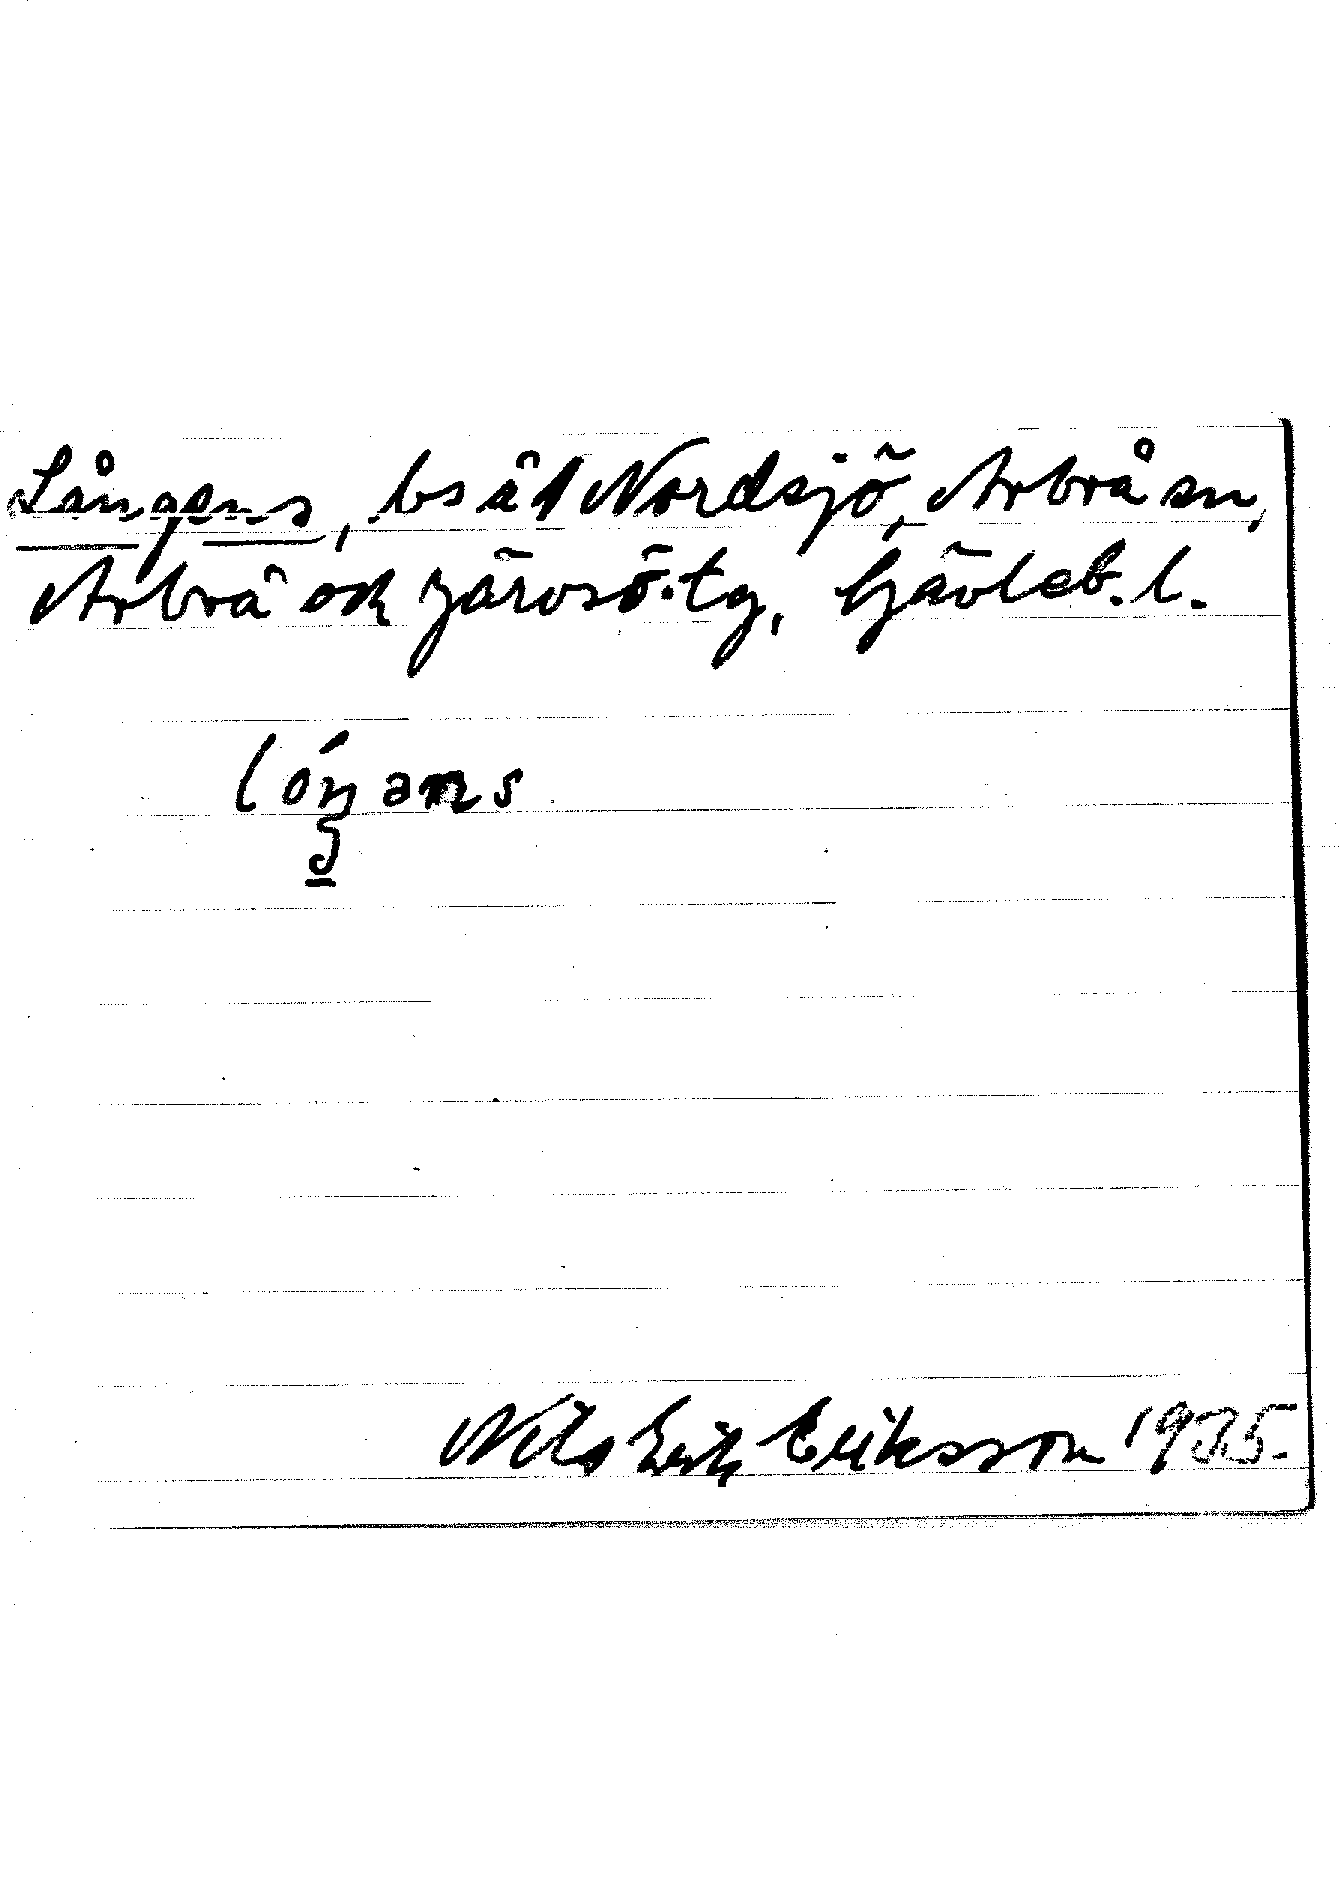 Långens, bs åt Nordsjö, Arbrå sn,
Arbrå och Järvsö tg, Gävleb. l.
lóŋəns
Nils Erik Eriksson 1935.